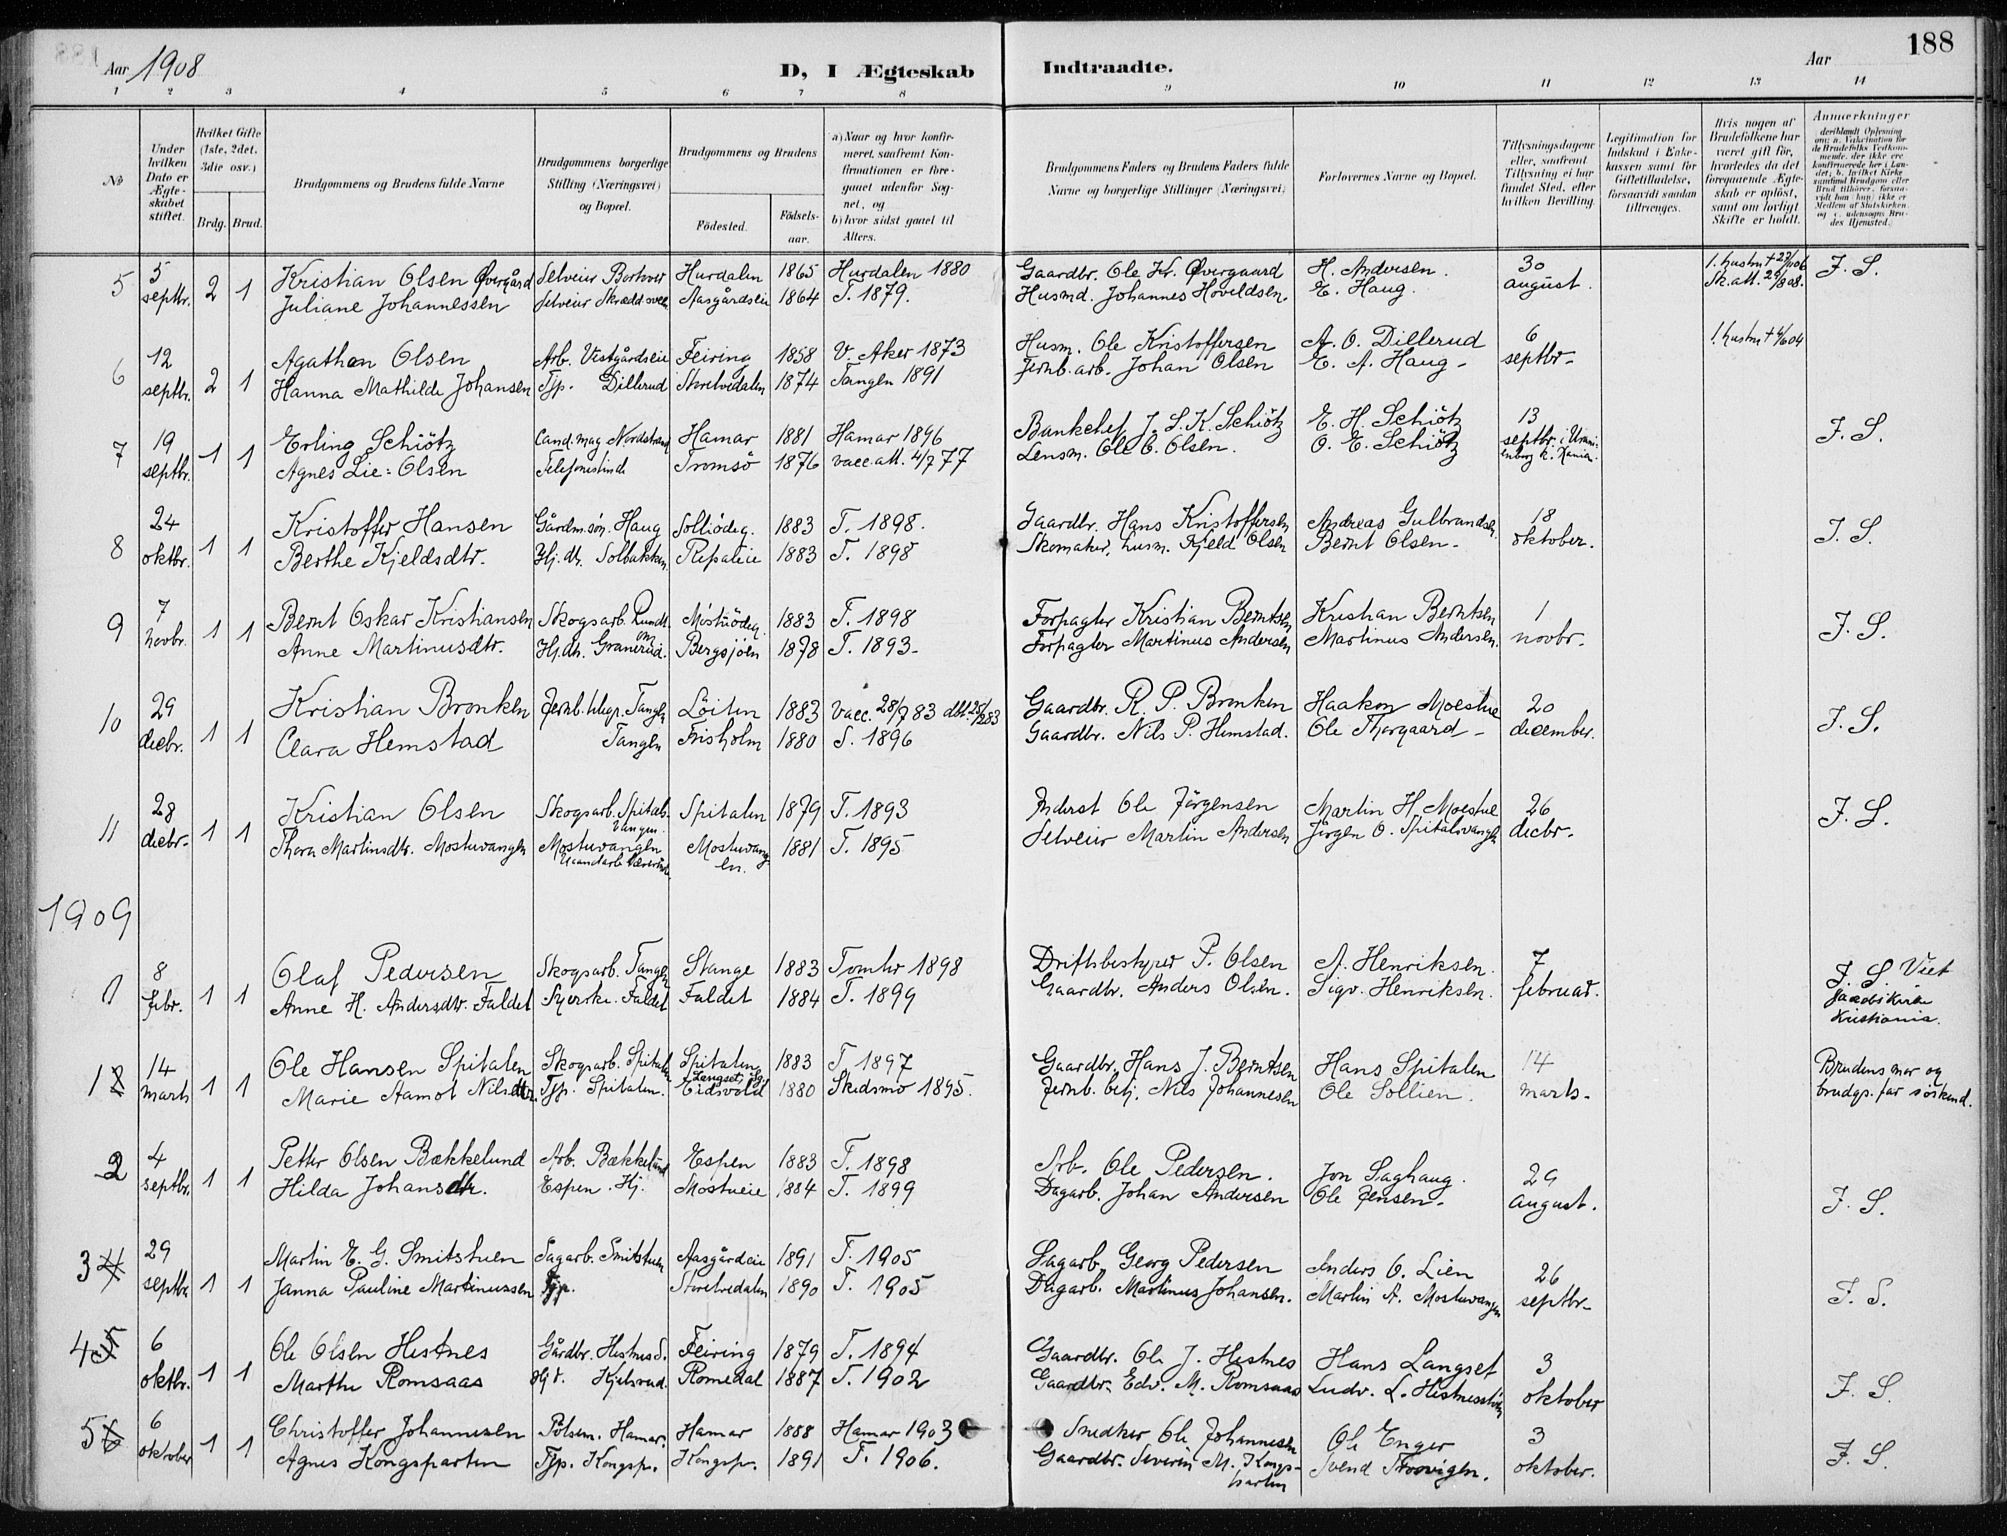 188
Aar 1908
D, I Ægteskab Indtraadte.
Aar
1 2 3 4 5 6 7 8 9 10 11 12 13 14
No
Under hvilken Dato er Ægteskabet stiftet.
Hvilket Gifte (1ste, 2det, 3die osv.)
Brdg. Brud.
Brudgommens og Brudens fulde Navne
Brudgommens borgerlige Stilling (Næringsvei) og Bopæl.
Brudgommens og Brudens
Fødested.
Fødselsaar.
a) Naar og hvor konfirmeret, saafremt Konfirmationen er foregaaet udenfor Sognet, og
b) hvor sidst gaaet til Alters.
Brudgommens Faders og Brudens Faders fulde Navne og borgerlige Stillinger (Næringsvei)
Forlovernes Navne og Bopæl.
Tillysningsdagene eller, saafremt Tillysning ei har fundet Sted, efter hvilken Bevilling.
Legitimation for Indskud i Enkekassen samt for Giftetilladelse, forsaavidt saadan tiltrænges.
Hvis nogen af Brudefolkene har været gift før, hvorledes da det foregaaende Ægteskab er opløst, samt om lovligt Skifte er holdt.
Anmærkninger
5 5 septbr. 2 1 Kristian Olsen Øvergård Selveier Borkver Hurdalen 1865 Hurdalen 1880 Gaardbr. Ole Kr. Øvergaard H. Andersen. 30 august. 1. hustru + 27/1 06 J. S.
Juliane Johannessen Selveier Aasgårdseie 1864 T. 1879. Husmd. Johannes Hoveldsen. E. Haug. Sk.att. 29/8 08.
6 12 septbr. 2 1 Agathon Olsen Arb. Vestgårdseie Feiring 1858 V. Aker 1873 Husm. Ole Kristoffersen A. O. Dillerud 6 septbr. 1. hustru +
Hanna Mathilde Johansen Tjp. Dillerud Storetvedalen 1874 Tangen 1891 Jernb. arb. Johan Olsen E. A. Haug
7 19 septbr. 1 1 Erling Schiötz Cand. mag Nordstrand Hamar 1881 Hamar 1896 Bankchef J. S. K. Schiötz E. H. Schiötz 13 septbr. i Uranienborg k. Kania. J. S.
Agnes Lie=Olsen Telefonistinde Tromsö 1876 vacc. att. 4/7 77 Lensm. Ole E. Olsen. O. E. Schiötz
8 24 oktbr. 1 1 Kristoffer Hansen Gårdm.søn. Haug Solliödeg. 1883 T. 1898. Gaardbr. Hans Kristoffersen Andreas Gulbrandsen 18 oktober. J. S.
Berthe Kjeldsdtr. Hj. dt. Solbakken Repaleie 1883 T. 1898 Skomaker, husm. Kjeld Olsen Bernt Olsen
9 7 novbr. 1 1 Bernt Oskar Kristiansen Skogsarb. Rundtom Möstuödeg. 1883 T. 1898 Forpagter Kristian Berntsen Kristian Berntsen 1 novbr. J. S.
Anne Martinusdtr. Hj.dt. Granerud. Bergsjöen 1878 T. 1893 Forpagter Martinus Andersen Martinus Andersen.
10 29 decbr. 1 1 Kristian Bronken Jernb. telegr. Tangen Löiten 1883 vacc. 28/9 83 Gaardbr. R. P. Bronken Haakon Moestue 20 december. J. S.
Clara Hemstad Tangen Frisholm 1880 S. 1896 Gaardbr. Nils P. Hemstad. Ole Thorgaard
11 28 decbr. 1 1 Kristian Olsen Skogsarb. Spitalsvangen Spitalen 1879 T. 1893 Inderst Ole Jörgensen Martin H. Moestue 26 decbr. J. S.
Thora Martinsdtr. Mostuvangen Mostuvangen Mostuvangen. 1881 T. 1895 Selveier Martin Andersen Jörgen O. Spitalsvangen
1909
1 8 febr. 1 1 Olaf Pedersen Skogsarb. Tangen Stange 1883 Tomter 1898 Driftsbestyrer P. Olsen A. Henriksen. 7 februar. J. S. Viet Jacobs kirke Kristiania.
Anne H. Andersdtr. Faldet Syerske. Faldet Faldet 1884 T. 1899 Gaardbr. Anders Olsen. Sigv. Henriksen.
1 2 14 marts 1 1 Ole Hansen Spitalen Skogsarb. Spitalen Spitalen 1883 T 1897 Gaardbr. Hans J. Berntsen Hans Spitalen 14 marts. Brudens mor og brudgs. far söskend.
Marie Aamot Nilsdtr. Tjp. Spitalen. Langset, Eidsvold 1880 Skedsmo 1895. Jernb. betj. Nils Johannesen Ole Sollien.
2 4 septbr. 1 1 Petter Olsen Bækkelund Arb. Bækkelund Espen 1883 T. 1898 Arb. Ole Pedersen. Jon Saghaug. 29 august. J. S.
Hilda Johansdtr. Espen. Hj. Möstueie 1884 T. 1899 Dagarb. Johan Andersen Ole Jensen
3 4 29 septbr. 1 1 Martin E. G. Smitstuen Sagarb. Smitstuen Aasgårdeie 1891 T. 1905 Sagarb. Georg Pedersen Anders O. Lien 26 septbr. J. S.
Janna Pauline Martinussen Tjp. Storetvedalen 1890 T. 1905 Dagarb. Martinus Johansen. Martin A. Mostuvangen
4 5 6 oktbr. 1 1 Ole Olsen Hestnes Gårdbr. Hestnes S. Feiring 1879 T. 1894 Gaardbr. Ole J. Hestnes Hans Langset 3 oktober J. S.
Marthe Romsaas Kjelsrud. Romedal 1887 T. 1902 Gaardbr. Edv. M. Romsaas Ludv. L.
5 6 6 oktober 1 1 Christoffer Johannesen Pölsem. Hamar. Hamar 1888 Hamar 1903 Snedker Ole Johannesen Ole Enger 3 oktober. J. S.
Agnes Kongsparten Tjp. Kongsp. Kongsp. 1891 T. 1906. Gaardbr. Severin M. Kongsparten Svend